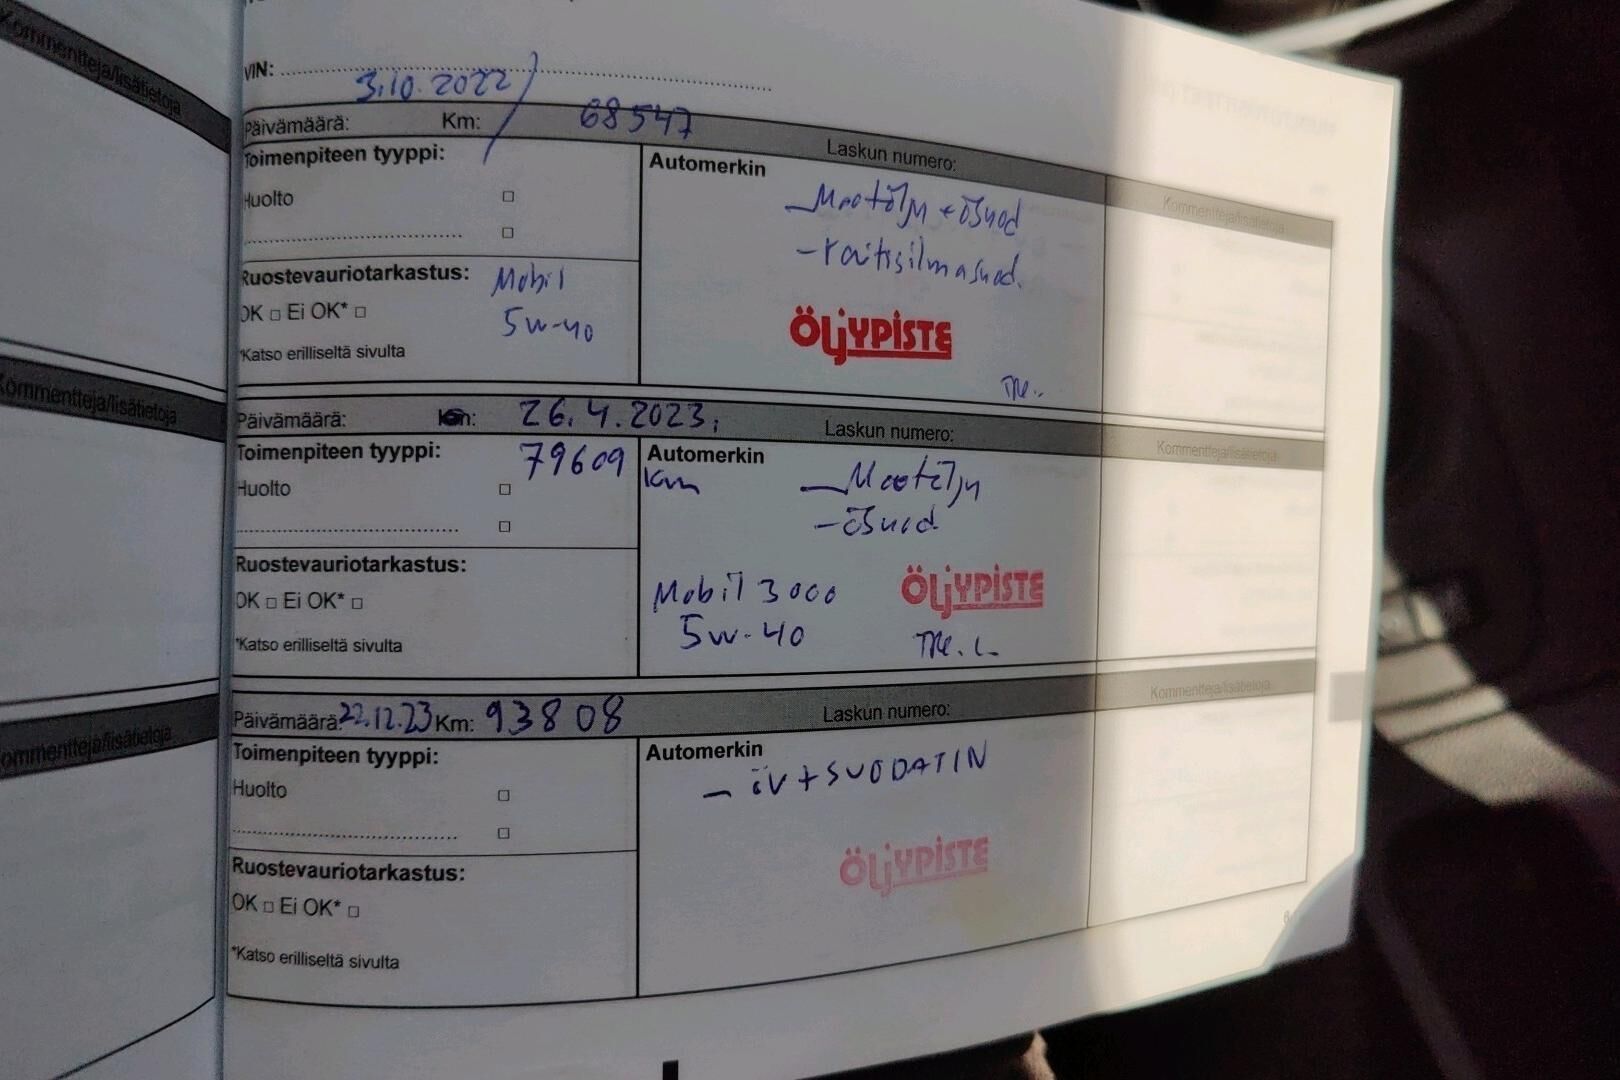 Kommentteja/lisätietoja
Kommentteja/lisätietoja
Kommentteja/lisätietoja
VIN:
3.10.2022 /
Päivämäärä: Km: 68547 Laskun numero: Kommentteja/lisätietoja
Toimenpiteen tyyppi: Automerkin
Huolto
Ruostevauriotarkastus:
OK □ Ei OK* □
*Katso erilliseltä sivulta
Mobil
5W-40
- raitisilmasuod.
ÖLJYPISTE
Päivämäärä: Km: 26.4.2023. Laskun numero: Kommentteja/lisätietoja
Toimenpiteen tyyppi: 79609 Automerkin
km
Huolto
Ruostevauriotarkastus:
OK □ Ei OK* □
*Katso erilliseltä sivulta
Mobil 3000
5W-40
ÖLJYPISTE
Päivämäärä: 22.12.23 Km: 93808 Laskun numero: Kommentteja/lisätietoja
Toimenpiteen tyyppi: Automerkin
- ÖV + SUODATIN
Huolto
Ruostevauriotarkastus:
OK □ Ei OK* □
*Katso erilliseltä sivulta
ÖLJYPISTE